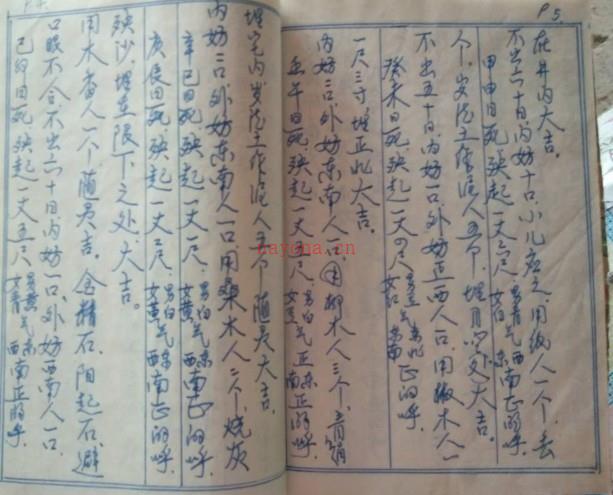 P5.
在井内大吉。
不出六十日内妨十口,小儿应之,用纸人一个,去
甲申日死,殃起一丈三尺,男青气西南正的呼,女白 东
个,岁德土作泥人五个,埋月 处大吉。
不出五十日,内妨一口,外妨正西人一口,用 木人一
癸未日死,殃起一丈四尺,男 气东北正的呼,女红
一尺三寸,埋正北大吉。
内妨二口,外妨东南人一口,用柳木人三个,青绢
壬午日死,殃起一丈八尺,男白气正东正的呼,女 南
埋宅内岁德土作泥人五个,随灵大吉。
内妨二口,外妨东南人一口,用桑木人二个,烧灰
辛巳日死,殃起一丈一尺,男白气东南正的呼,女黄 西
庚辰日死,殃起一丈二尺,男白气东南正的呼,女黄 西
殃沙,埋在限下之处,大吉。
用木香人一个,随灵吉。金精石,阳起石,避
口眼不合,不出六十日,内妨一口,外妨西南人一口,
己卯日死,殃起一丈五尺,男黄气东南正的呼,女青 西
nayona.cn